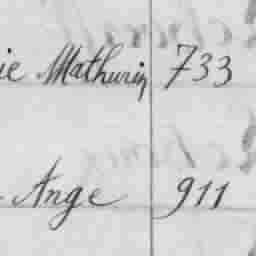 ie Mathurin 733
Ange 911